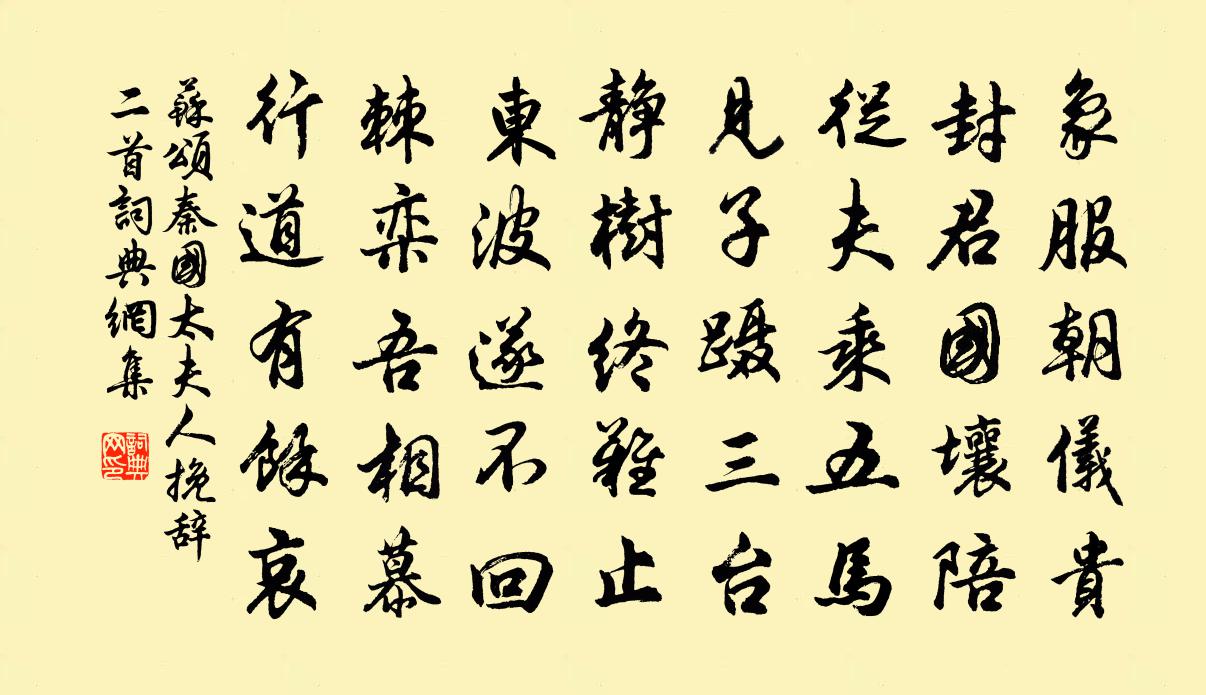 象服朝儀貴
封君國壤陪
從夫乘五馬
見子蹑三台
静樹终難止
東波遂不回
棘栾吾相慕
行道有餘哀
蘇頌秦國太夫人挽辞
二首詞典網集
詞典网印